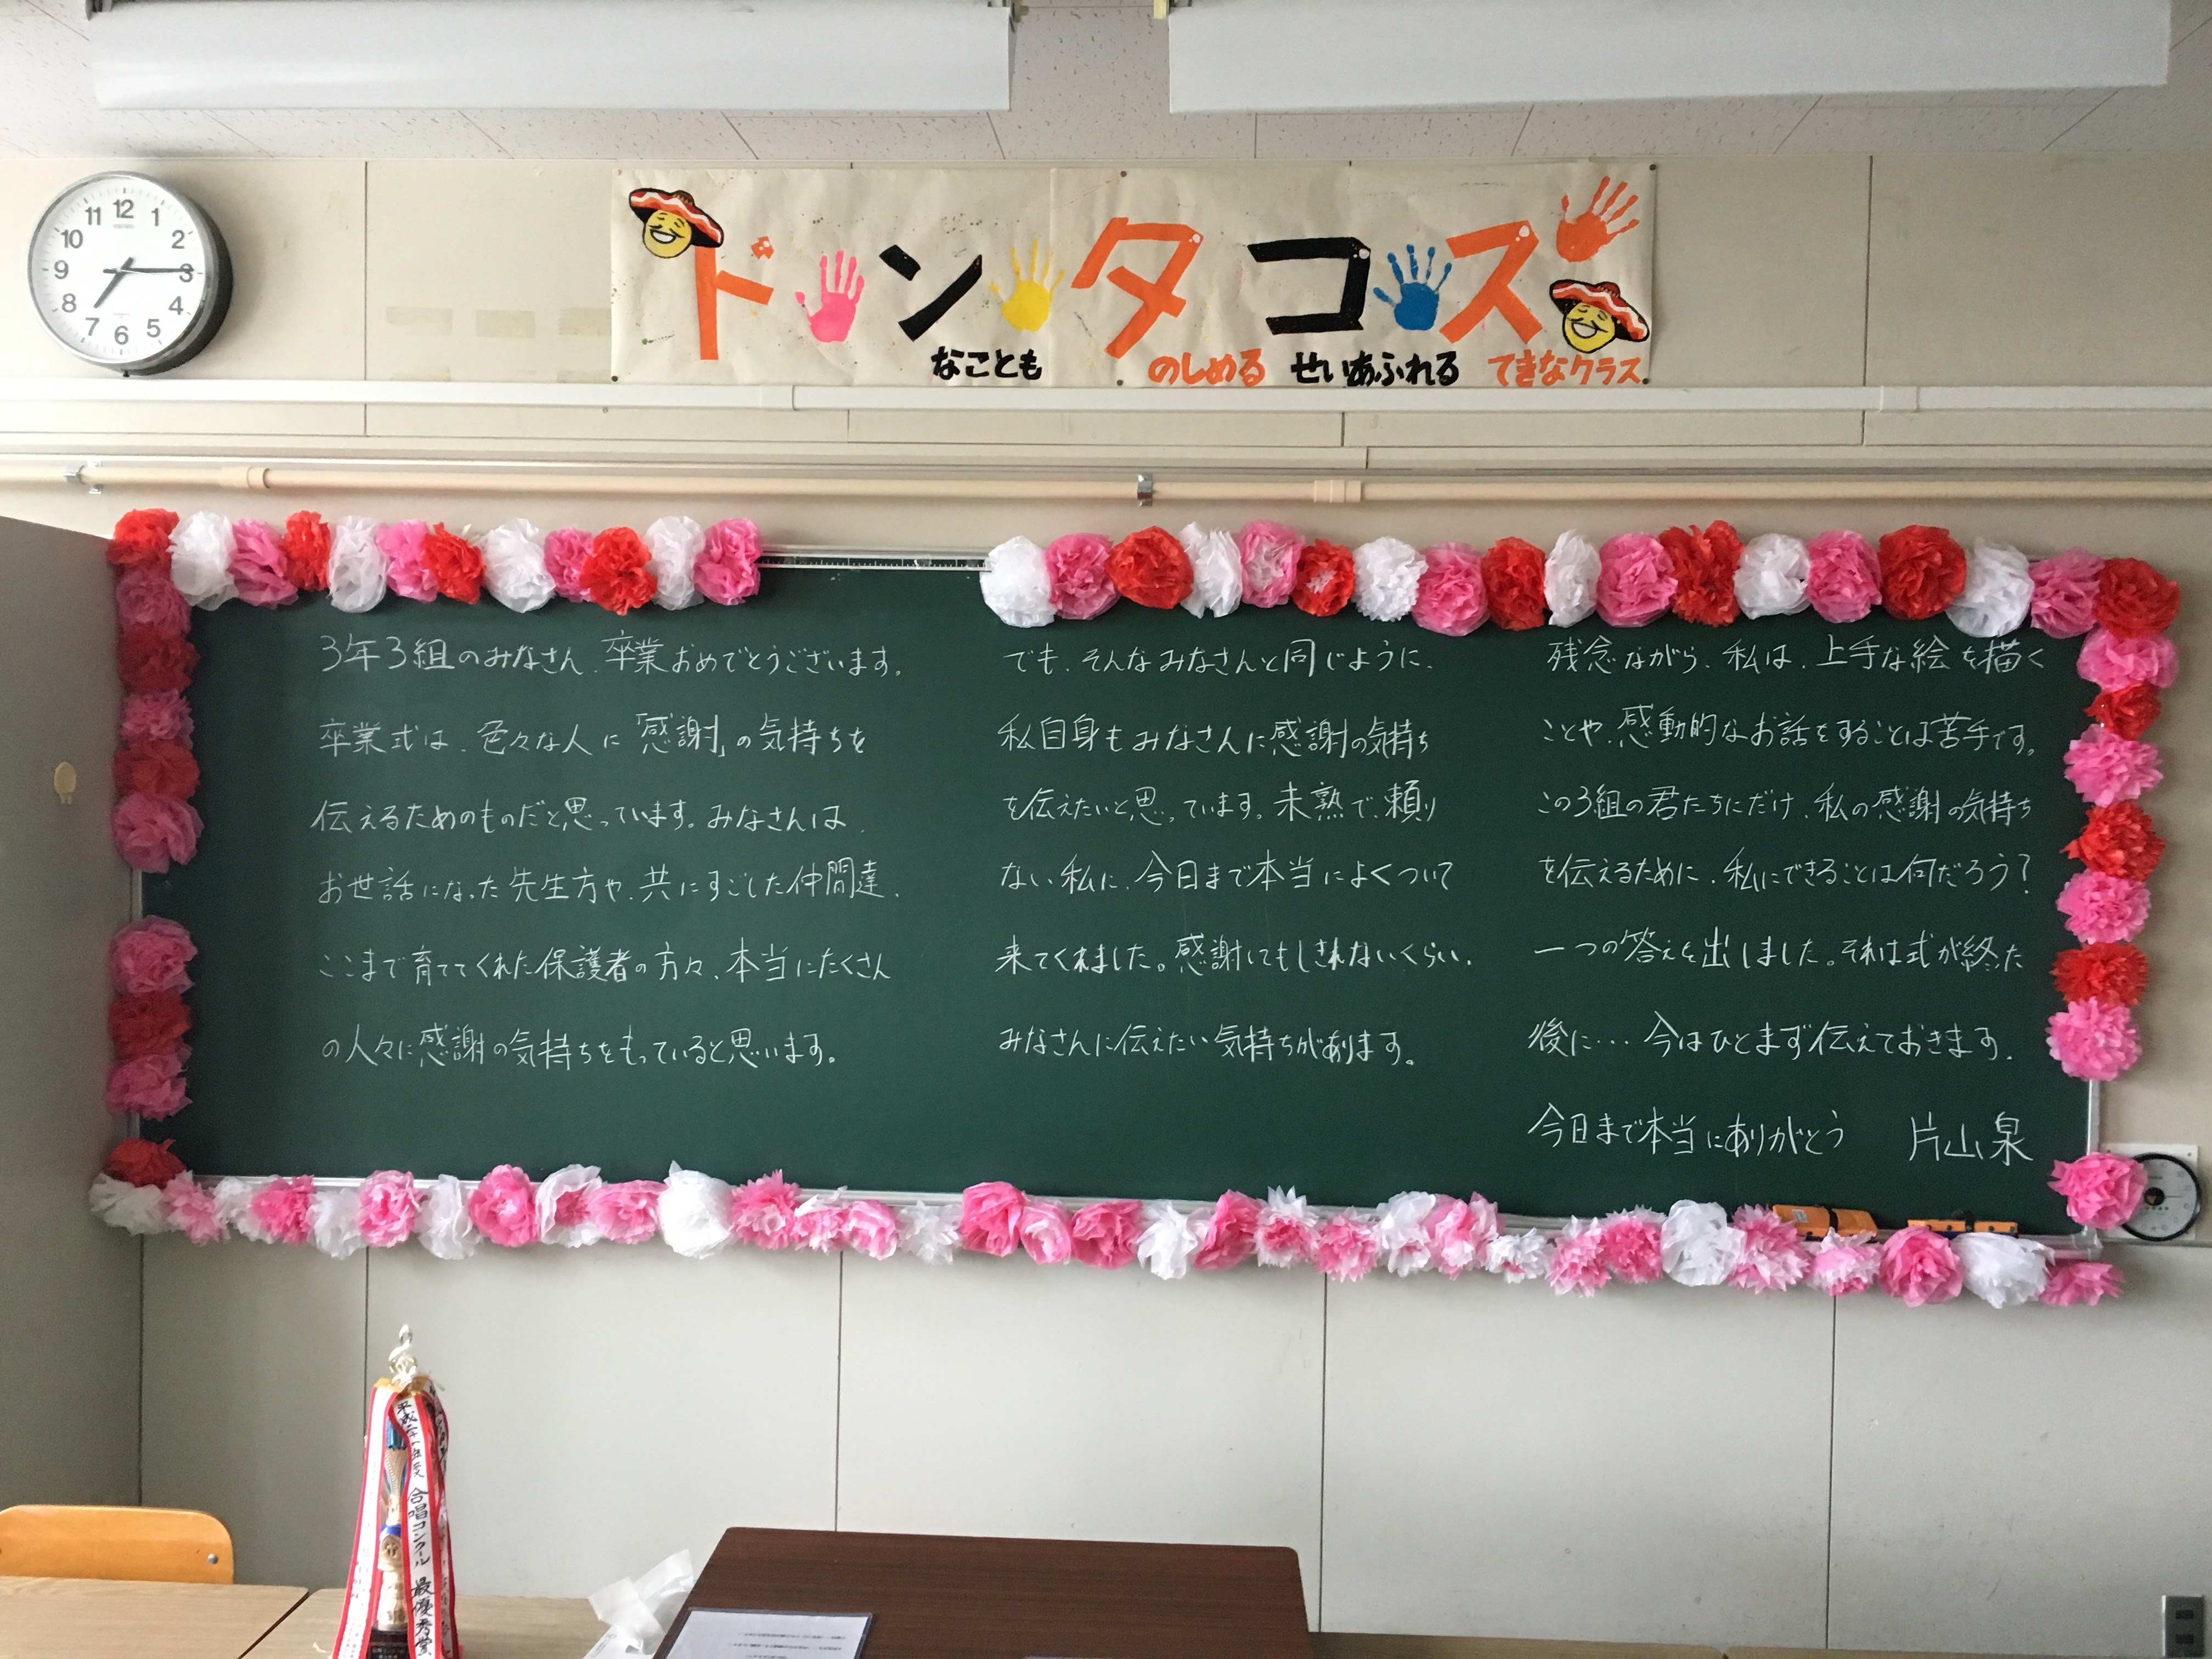 ドンタコス
なことも のしめる せいあふれる てきなクラス
3年3組のみなさん、卒業おめでとうございます。
卒業式は、色々な人に「感謝」の気持ちを
伝えるためのものだと思っています。みなさんは、
お世話になった先生方や、共にすごした仲間達、
ここまで育ててくれた保護者の方々、本当にたくさん
の人々に感謝の気持ちをもっていると思います。
でも、そんなみなさんと同じように、
私自身もみなさんに感謝の気持ち
を伝えたいと思っています。未熟で、頼り
ない私に、今日まで本当によくついて
来てくれました。感謝してもしきれないくらい、
みなさんに伝えたい気持ちがあります。
残念ながら、私は、上手な絵を描く
ことや、感動的なお話をすることは苦手です。
この3組の君たちにだけ、私の感謝の気持ち
を伝えるために、私にできることは何だろう?
一つの答えを出しました。それは式が終った
後に… 今はひとまず伝えておきます。
今日まで本当にありがとう 片山泉
合唱コンクール 最優秀賞
12
1
2
3
4
5
6
7
8
9
10
11